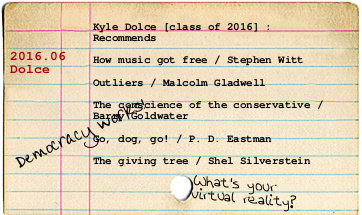 Kyle Dolce [class of 2016] :
Recommends
2016.06
Dolce
How music got free / Stephen Witt
Outliers / Malcolm Gladwell
The conscience of the conservative /
Barry Goldwater
Democracy works!
Go, dog, go! / P. D. Eastman
The giving tree / Shel Silverstein
What's your
virtual reality?